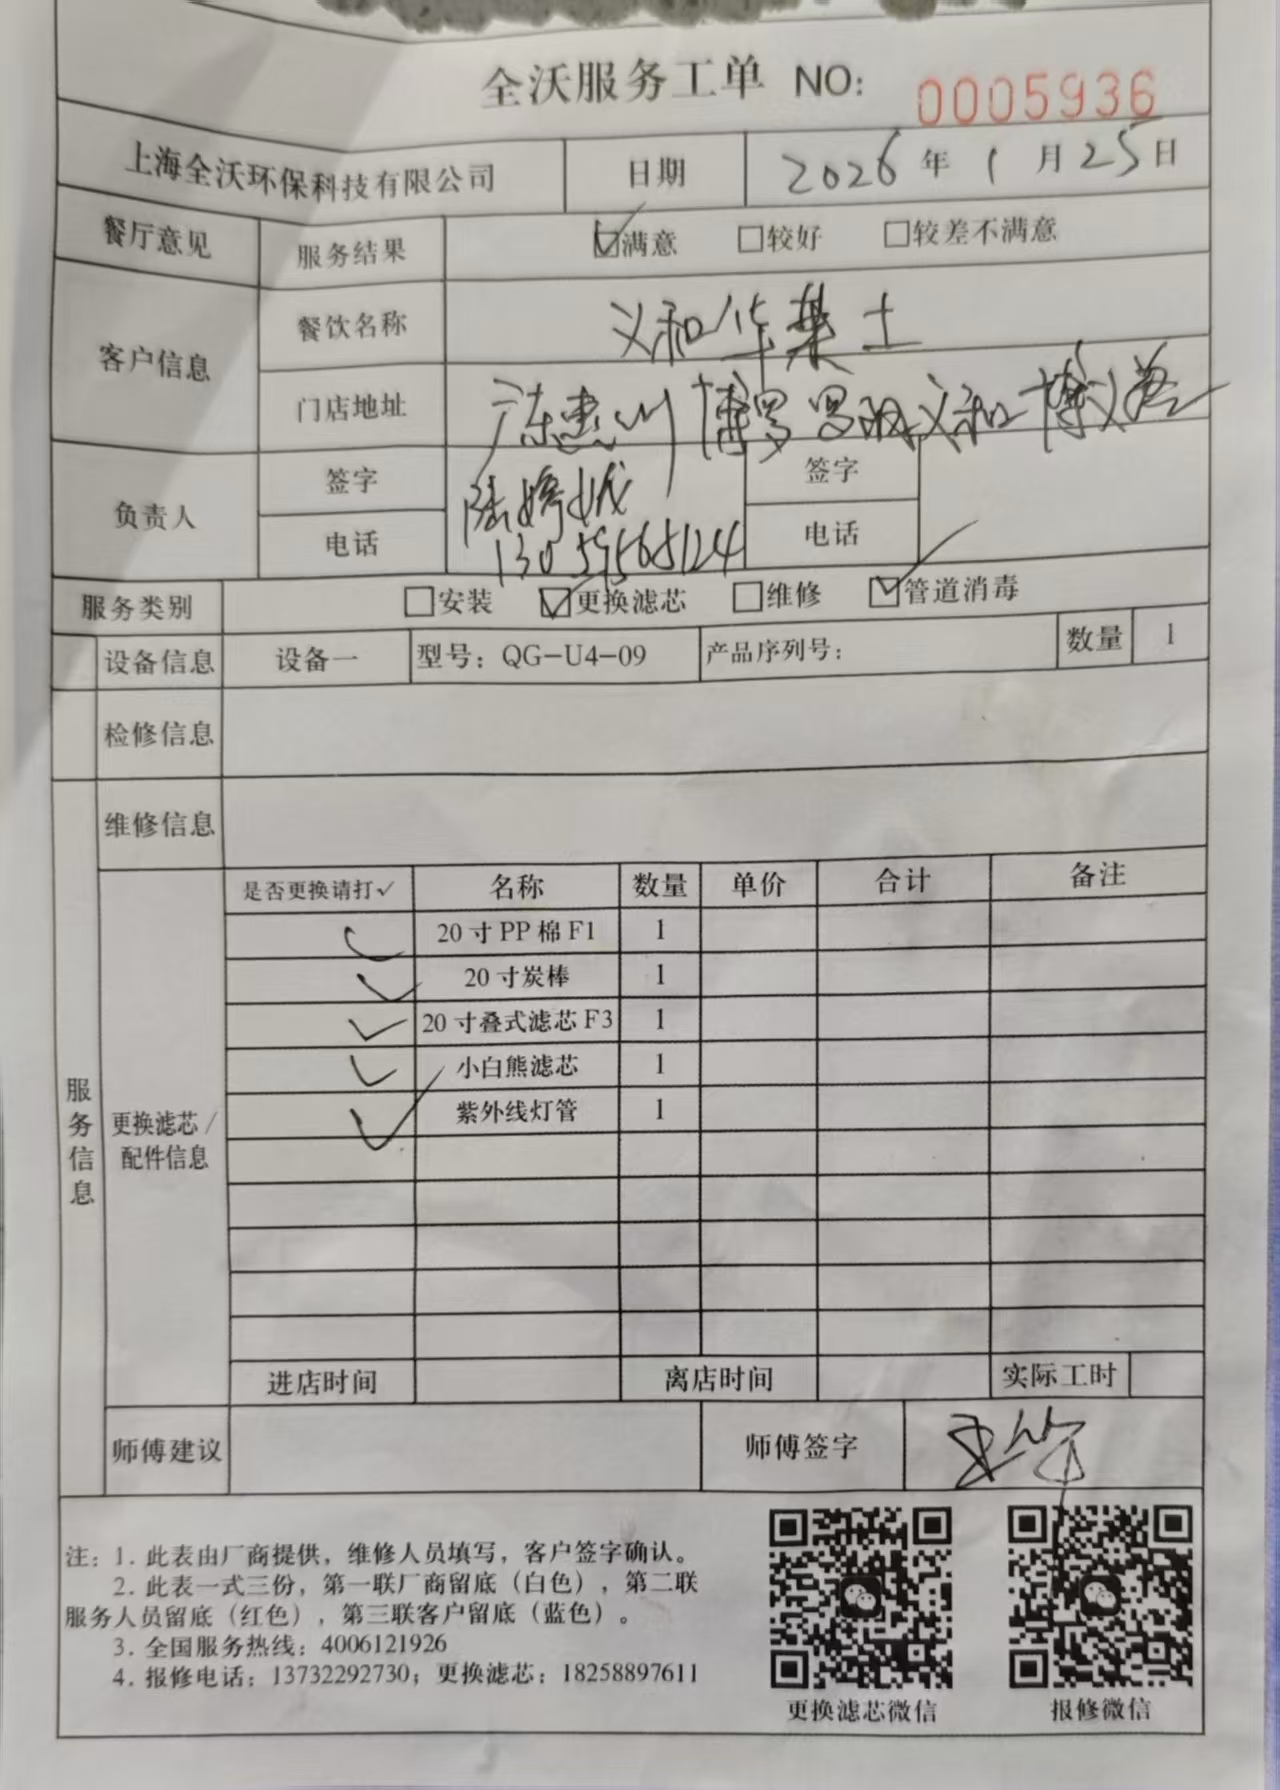 全沃服务工单 NO: 0005936
上海全沃环保科技有限公司 日期 2026年1月25日
餐厅意见 服务结果 ☑满意 □较好 □较差不满意
客户信息 餐饮名称 义和华莱士
门店地址 广东惠州博罗罗阳义和博义路
负责人 签字 陆婷 签字
电话 13059565124 电话
服务类别 □安装 ☑更换滤芯 □维修 ☑管道消毒
设备信息 设备一 型号：QG-U4-09 产品序列号： 数量 1
检修信息
维修信息
服务信息
更换滤芯/配件信息
是否更换请打✓ 名称 数量 单价 合计 备注
✓ 20寸PP棉F1 1
✓ 20寸炭棒 1
✓ 20寸叠式滤芯F3 1
✓ 小白熊滤芯 1
✓ 紫外线灯管 1
进店时间 离店时间 实际工时
师傅建议 师傅签字
注：1. 此表由厂商提供，维修人员填写，客户签字确认。
2. 此表一式三份，第一联厂商留底（白色），第二联
服务人员留底（红色），第三联客户留底（蓝色）。
3. 全国服务热线：4006121926
4. 报修电话：13732292730；更换滤芯：18258897611
更换滤芯微信 报修微信